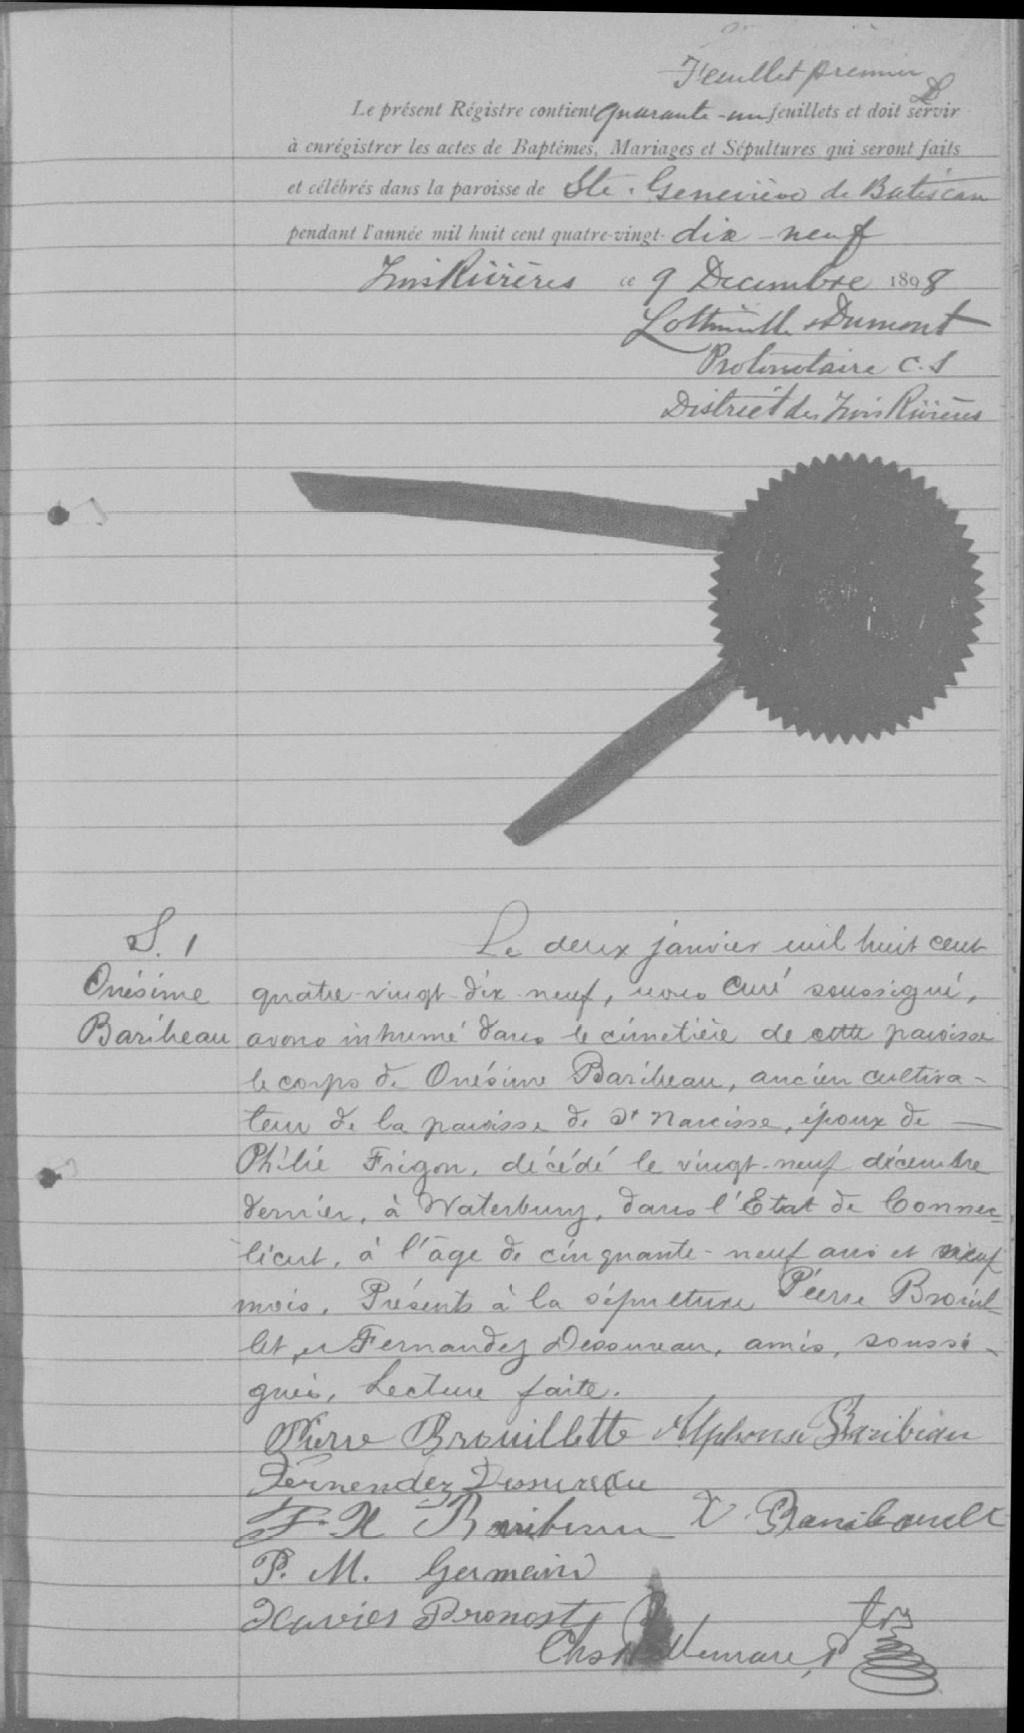 Feuillet premier
Le présent Régistre contient quarante-un feuillets et doit servir
à enrégistrer les actes de Baptêmes, Mariages et Sépultures qui seront faits
et célébrés dans la paroisse de Ste. Geneviève de Batiscan
pendant l'année mil huit cent quatre-vingt-dix-neuf
Trois Rivières ce 9 Decembre 1898
Lottinville & Dumont
Protonotaire C. S
District des Trois Rivières
S. 1
Onésime
Baribeau
Le deux janvier mil huit cent
quatre-vingt-dix-neuf, nous Curé soussigné,
avons inhumé dans le cimetière de cette paroisse
le corps de Onésime Baribeau, ancien cultiva-
teur de la paroisse de St Narcisse, époux de
Philie Frigon, décédé le vingt-neuf décembre
dernier, à Waterbury, dans l'Etat de Connec-
ticut, à l'âge de cinquante-neuf ans et neuf
mois. Présents à la sépulture Pierre Brouil-
let, et Fernandez Dessureau, amis, soussi-
gnés, Lecture faite.
Pierre Brouillette Alphonse Baribeau
Fernendez Dessureau
F. X Baribeau X. Baribeault
P. M. Germain
Xavier Pronost
Chs Bellemare, P